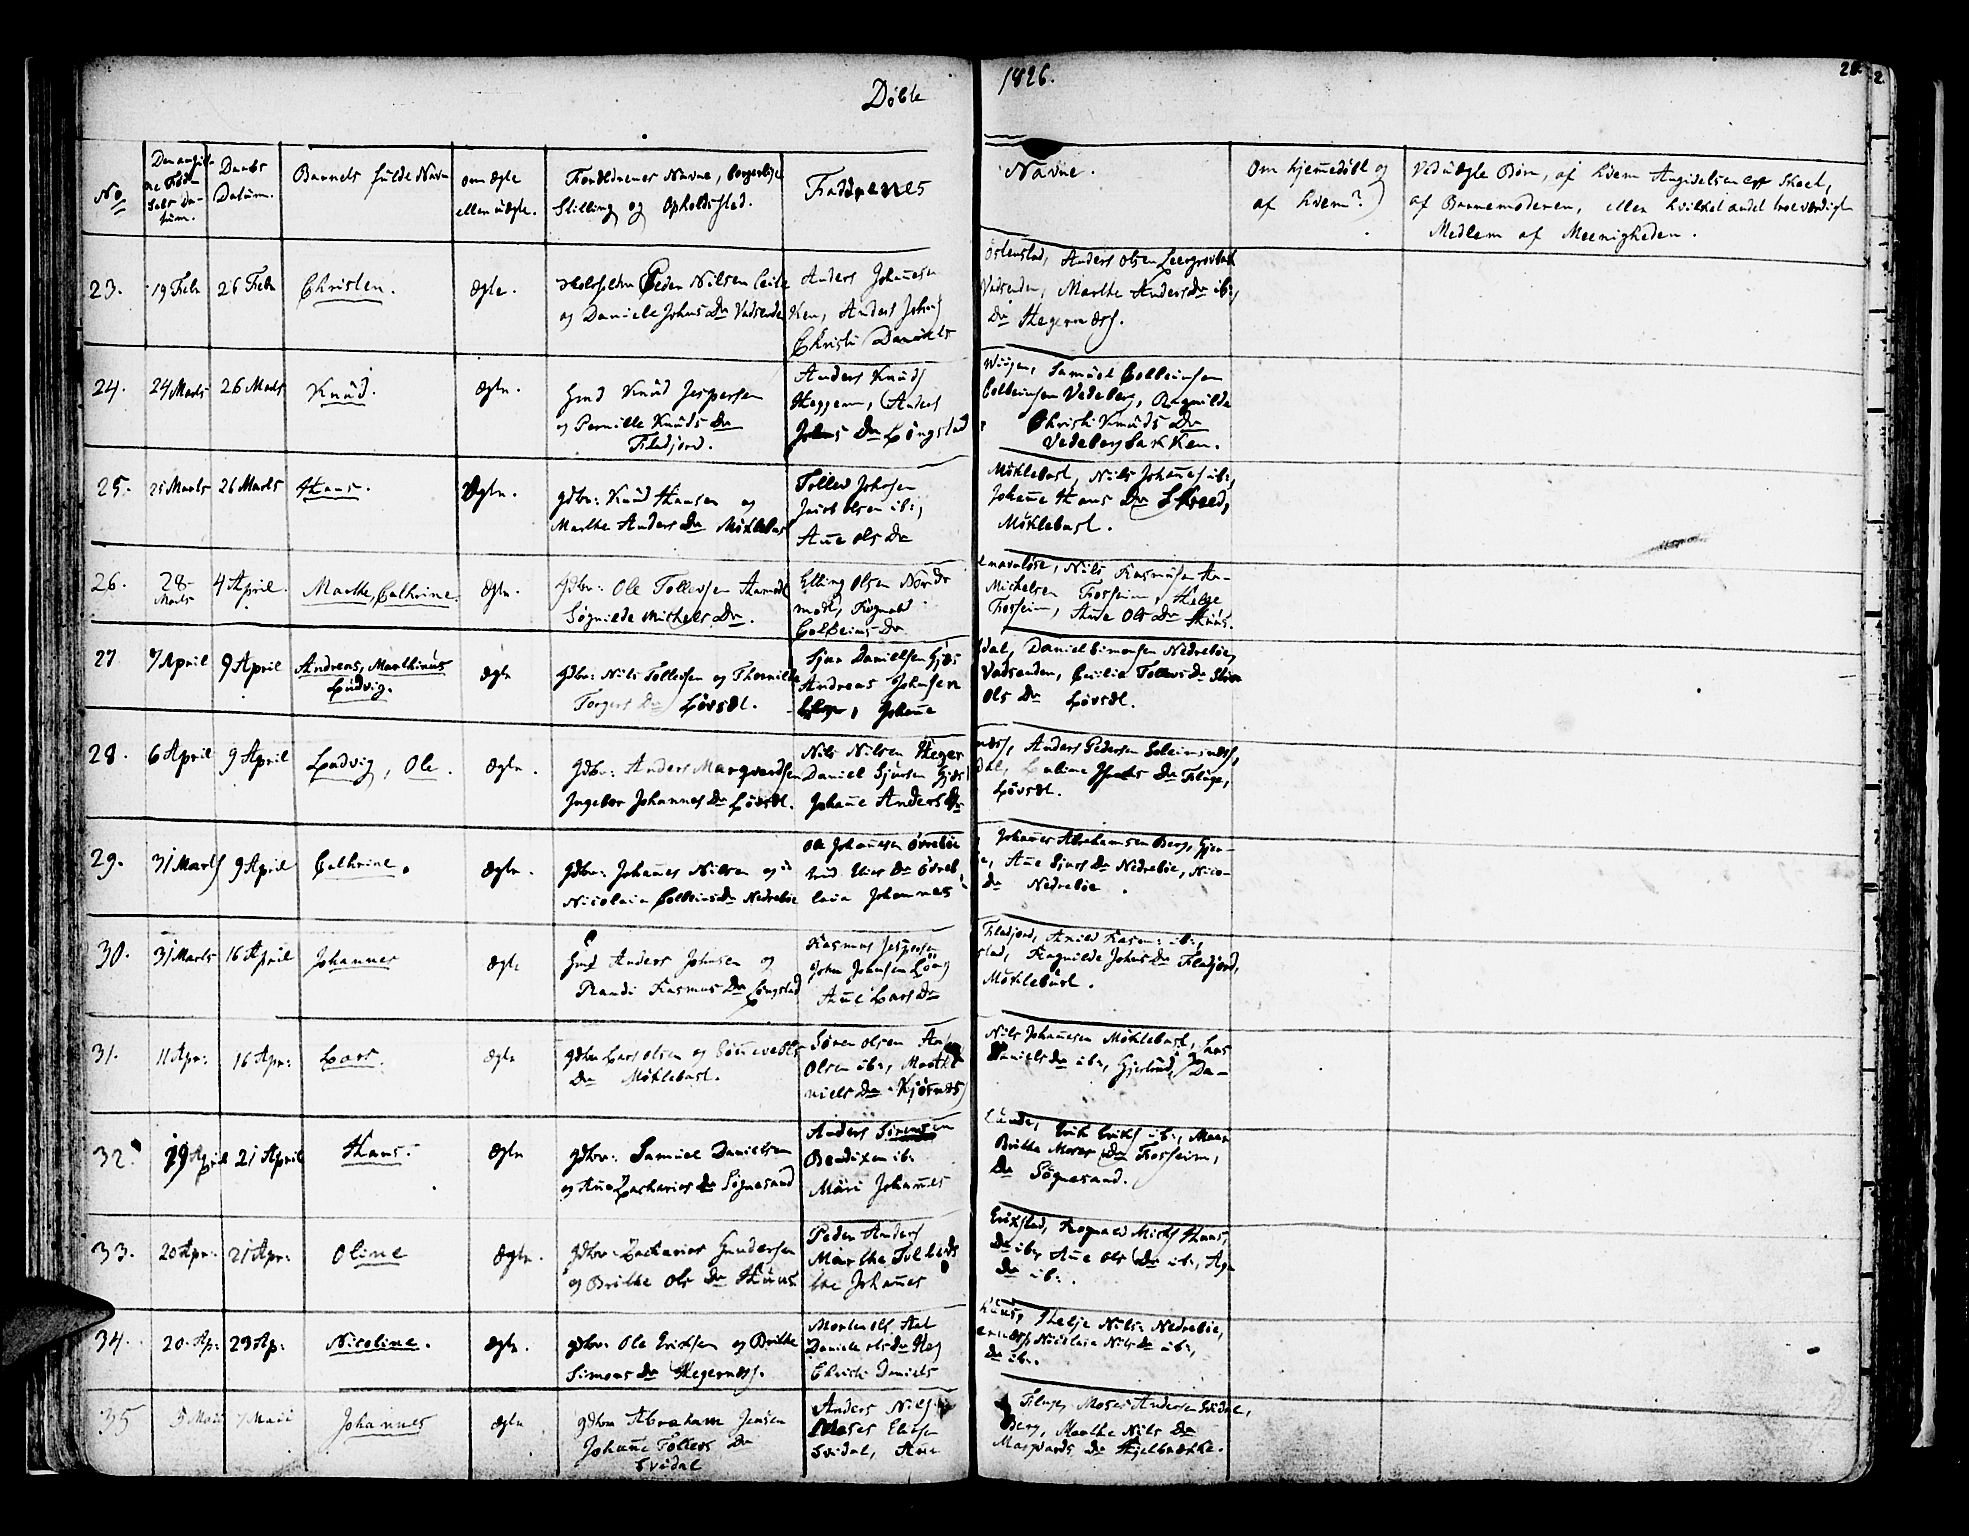 Döbte
1826.
28.
No
Den angiv-
ne Föd-
sels Da-
tum.
Daabs
Datum.
Barnets fulde Navn
om ægte
eller uægte.
Forældrenes Navne, borgerlige
Stilling og Opholdsstad.
Faddrenes
Navne.
Om hjemmedöbt og
af hvem?
Ved uægte Börn, af hvem Angivelsen er skeet,
af Barnemoderen, eller hvilket andet troeværdigt
Medlem af Meenigheden.
23. 19 Febr 26 Febr Christen. Ægte.
Peder Nilsen
og Daniele Johns Dr Vadsende
Anders Johañesen
Ken, Anders Johns
Christi Daniels
Östenstad, Anders Olsen
Vadsenden, Marthe Anders Dr ib:,
Dr Hegernæss.
24. 24 Marts 26 Marts Knud. Ægte.
Gmd Knud Jespersen
og Pernille Knuds Dr
Fladjord.
Anders Knuds
Heggem, Anders
Johns Dr Löngstad
Samuel Colbeinsen
Colbeinsen Vedeberg, Ragnilde
Christi Knuds Dr
Vedeberg bakken.
25. 25 Marts 26 Marts Hans. Ægte.
Gdbr: Knud Hansen og
Marthe Anders Dr Möklebust
Tollev Johnsen
Jacob Olsen ib:,
Añe Ols Dr
Möklebust, Nils Johañes ib:,
Johañe Hans Dr Skreed,
Möklebust.
26. 28 Marts 4 April. Marthe, Cathrine. Ægte.
Gdbr: Ole Tollevsen
Sögnilde Michels Dr.
Elling Olsen
Colbeins Dr
Nils Rasmusen
Michelsen Fossheim, Helge
Fossheim, Añe Ols Dr Huus.
27 7 April 9 April Andreas, Marthinus
Ludvig. Ægte
Gdbr: Nils Tollefsen og Thomilde
Torgers Dr Lövset.
Sjur Danielsen Gjæs
Andreas Johnsen
Johañe
dal, Daniel Simonsen Nedreböe,
Vadsenden, Cecilia Tollevs Dr
Ols Dr Lövset.
28. 6 April 9 April Ludvig, Ole. Ægte.
Gdbr: Anders Marqvardsen
Ingebor Johannes Dr Lövset.
Nils Nilsen Heger
Daniel Sjursen Gjæs
Johañe Anders Dr
næss, Anders Pedersen Soleimsnæss,
dal, Dr Fluge,
Lövset.
29. 31 Marts 9 April Cathrine. Ægte.
Gdbr: Johañes Nilsen og
Nicolaia Colbeins Dr Nedreböe
Ole Johañesen Övreböe
Dr Övreb,
laia Johannes
Johañes Abrahamsen Berg, Gjer-
Añe Sjurs Dr Nedreböe, Nico-
Dr Nedreböe.
30. 31 Marts 16 April Johannes Ægte
Gmd Anders Johnsen og
Randi Rasmus Dr Löngstad
Rasmus Jespersen
John Jonsen Löng
Añe Lars Dr
Fladjord, Rasm: ib:,
stad, Ragnilde Johns Dr Fladjord,
Möklebust.
31. 11 Apr: 16 Apr: Lars. Ægte
Gdbr Lars Olsen og
Dr Möklebust.
Sören Olsen
Olsen ib:, Marthe
niels Dr Kjörnæs
Nils Johañesen Möklebust, Lars
Daniels Dr ib:, Gjertrud, Da-
32. 19 April 21 April Hans. Ægte
Gdbr: Samuel Danielsen
og Añe Zacharias Dr Sögnesand
Anders Sörensen
Bendixen ib:
Mari Johañes
Lunde, Erik Eriks ib:,
Britha Moses Dr Fossheim,
Dr Sögnesand.
33. 20 Apr: 21 Apr: Oline Ægte.
Gdbr: Zacharias Gundersen
og Brithe Ols Dr Huus
Peder Anders
Marthe
the Johañes
Erikstad, Rognald Michs Huus,
Dr ib: Añe Ols Dr ib:, Ag-
Dr ib:.
34. 20. Ap: 23 Ap: Nicoline. Ægte.
Gdbr: Ole Eriksen og Brithe
Simons Dr Hegernæss.
Morten Ols
Daniele Ols Dr Heg
Christi Daniels
Huus, Helje Nils Nedreböe,
ernæss, Nicolaia Nils Dr ib:,
Dr ib:.
35 5 Maii 7 Maii Johannes Ægte
Gdbr Abraham Jensen
Johañe Tollevs Dr
Svidal
Anders Nils
Moses
Svidal, Añe
Fluge, Moses Andersen Svidal,
Berg, Marthe Nils Dr
Marqvards Dr Kjelbrække.